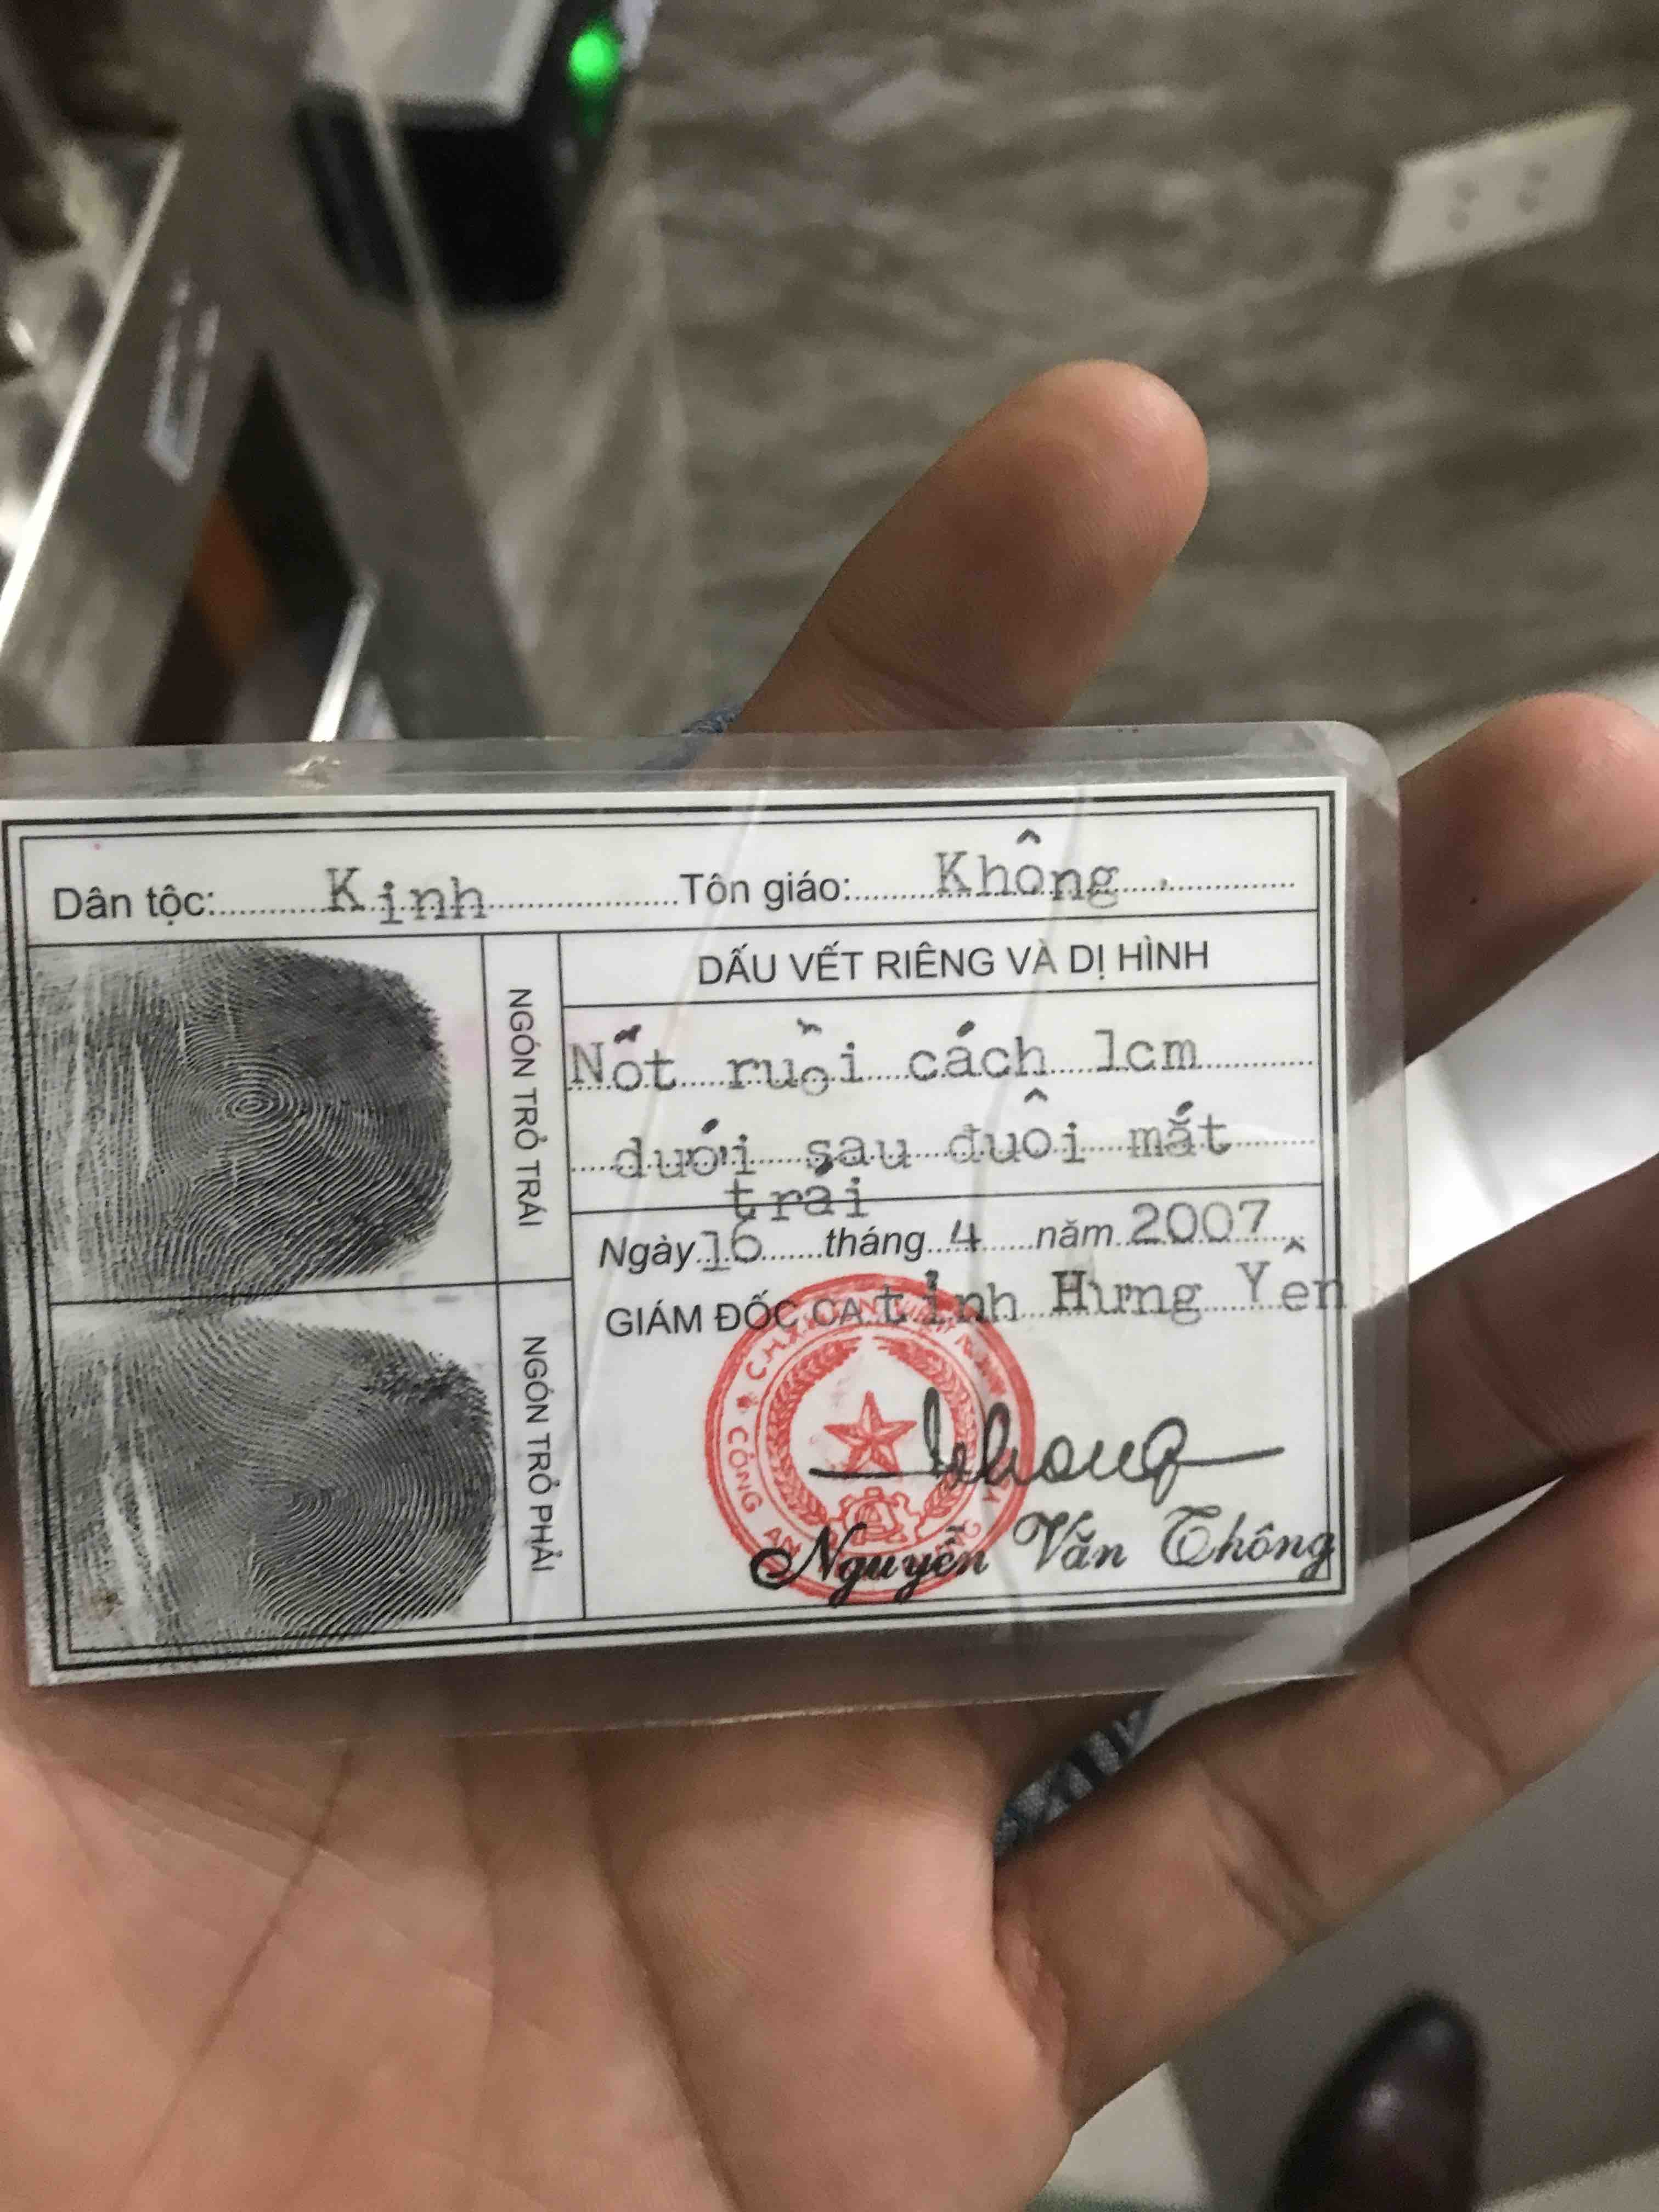 Dân tộc: Kinh Tôn giáo: Không
DẤU VẾT RIÊNG VÀ DỊ HÌNH
NGÓN TRỎ TRÁI
Nốt ruồi cách 1cm
dưới sau đuôi mắt
trái
Ngày 16 tháng 4 năm 2007
GIÁM ĐỐC CA tỉnh Hưng Yên
NGÓN TRỎ PHẢI
CÔNG AN
Nguyễn Văn Thông